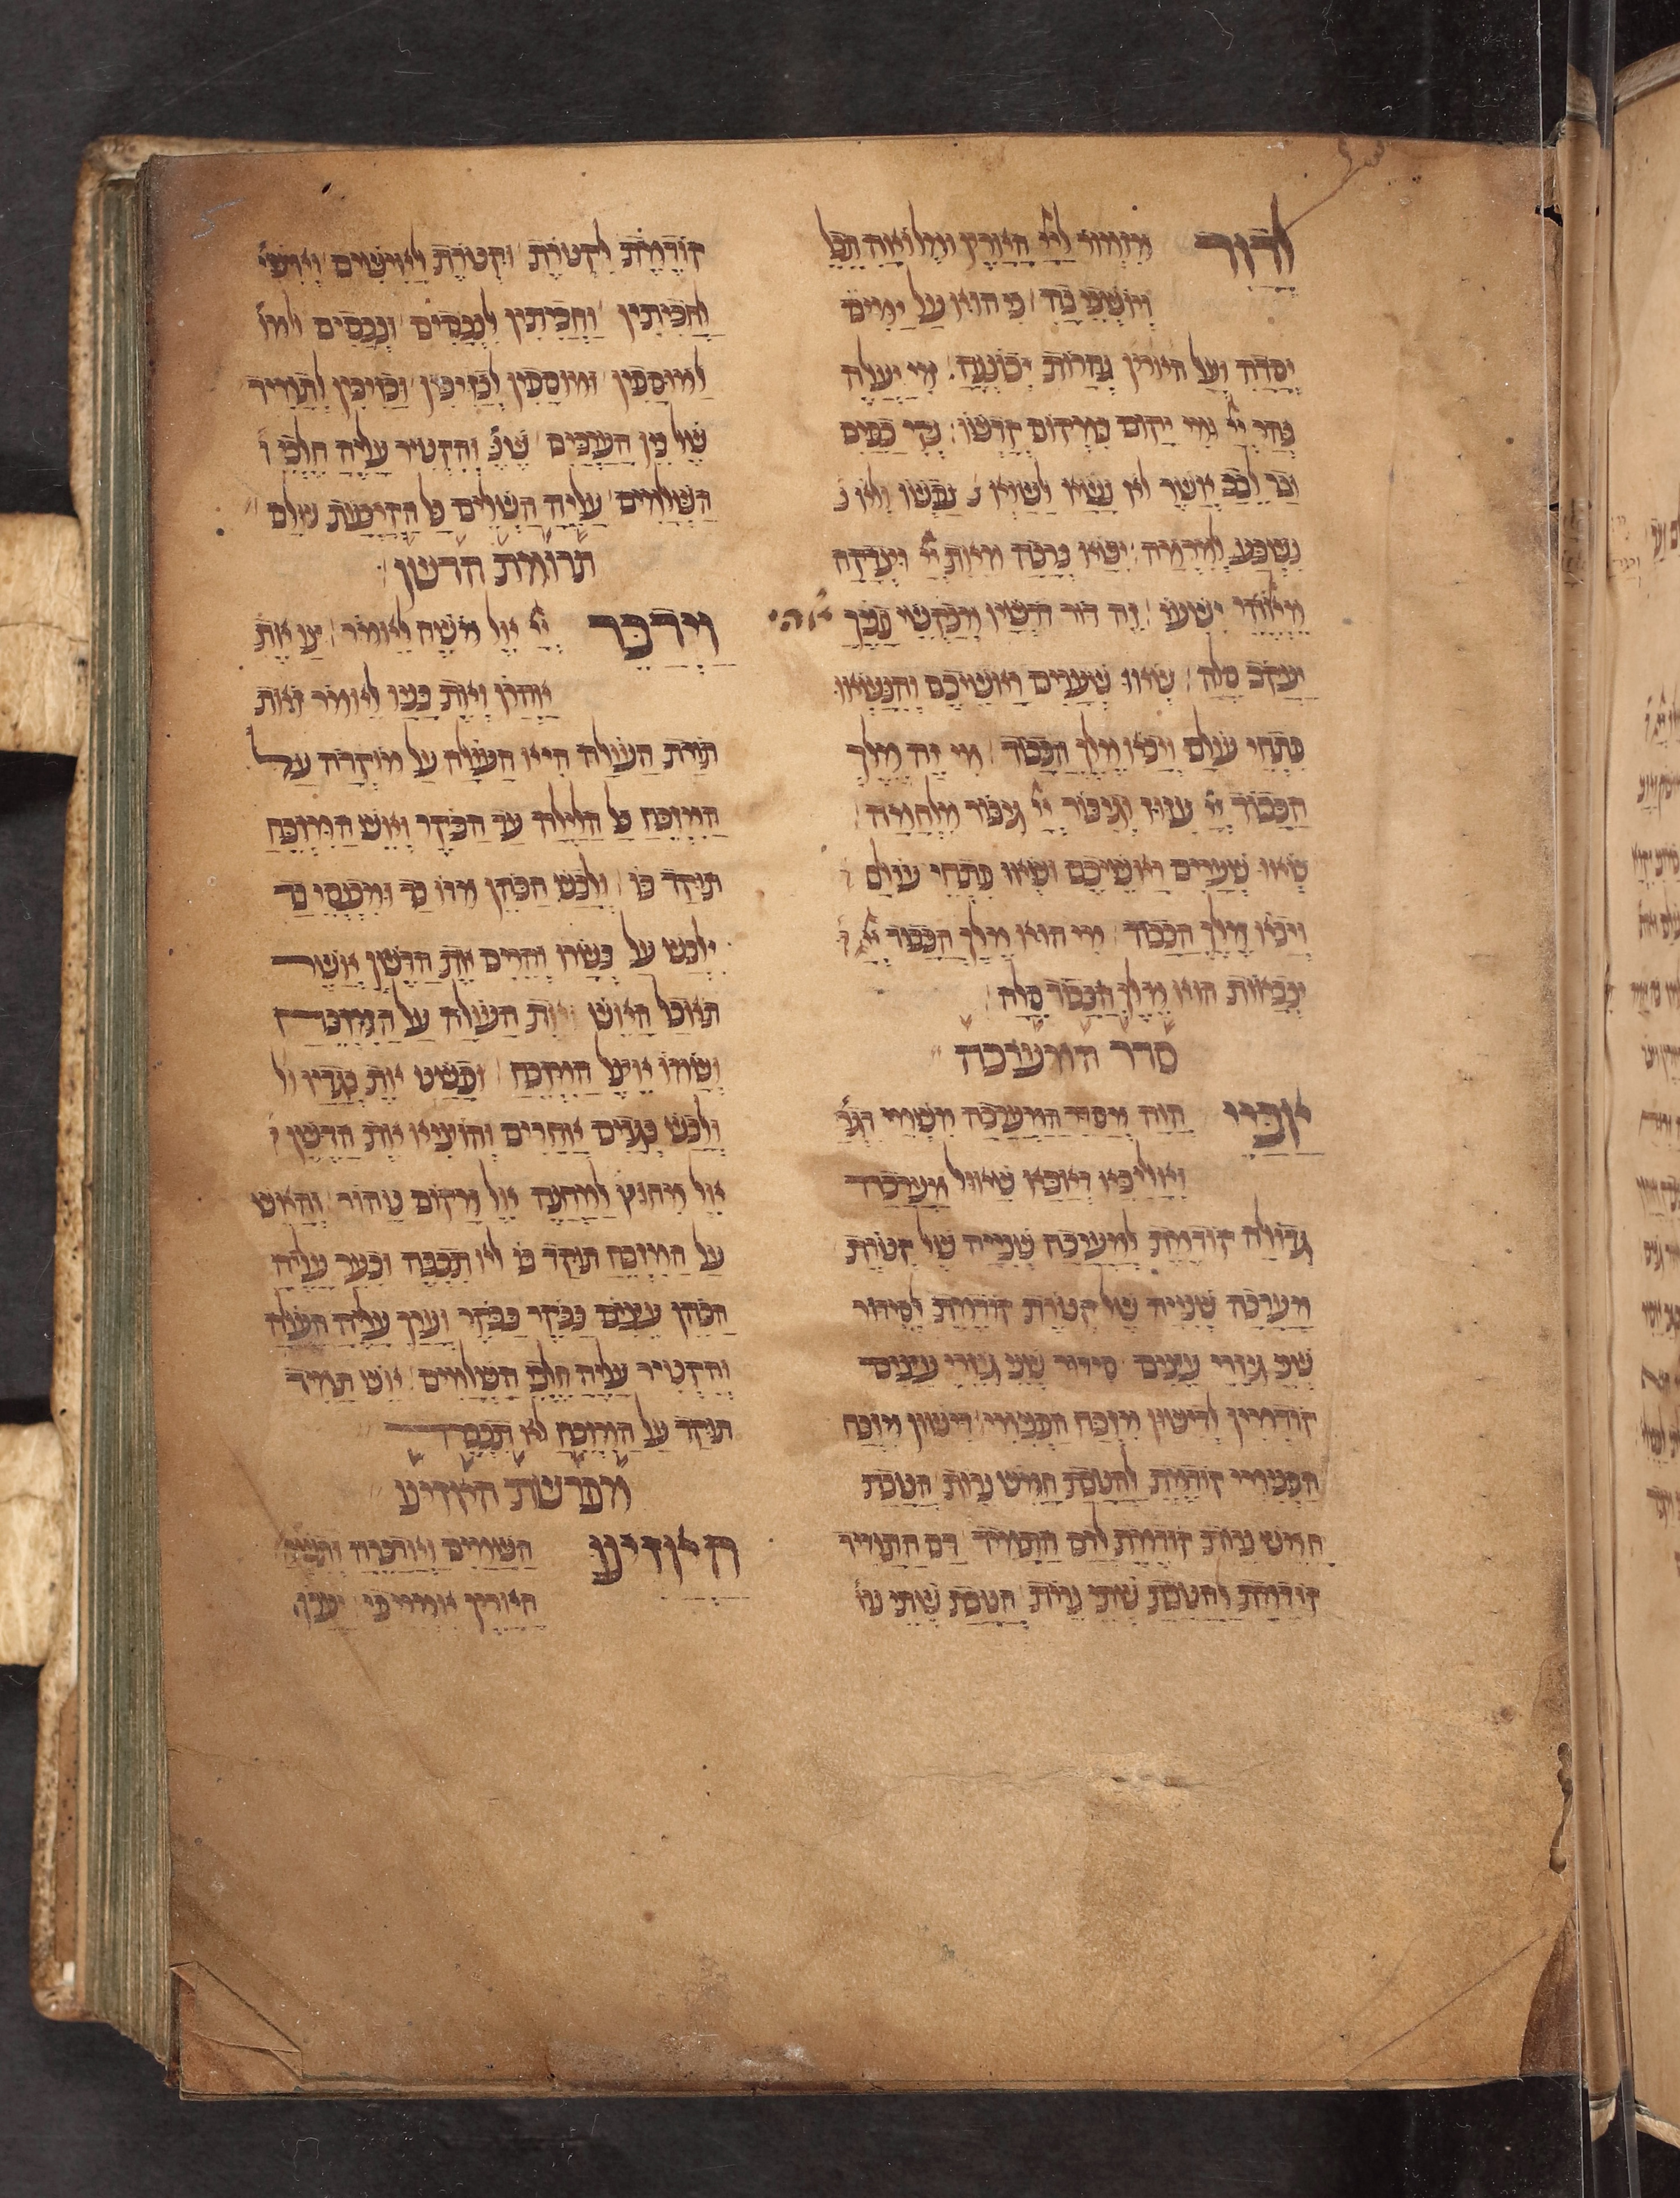 לדוד מזמור ליי הארץ ומלואה תבל
ויושבי בה כי הוא על ימים
יסדה ועל
נהרות יכוננה מי יעלה
בהר יי ומי יקום במקום קדשו נקי כפים
ובר לבב אשר לא נשא לשוא נפשו ולא נ
נשבע למרמה ישא ברכה מאת יי וצדקה
מאלהי ישעו זה דור דרשיו מבקשי פניך
אלהי
יעקב סלה שאו שערים ראשיכם והנשאו
פתחי עולם ויבא מלך הכבוד מי זה מלך
הכבוד יי עזוז וגבור יי גבור מלחמה
שאו שערים ראשיכם ושאו פתחי עולם
ויבא מלך הכבוד מי הוא מלך הכבוד יי
צבאות הוא מלך הכבוד סלה
סדר המערכה
אביי הוה מסדר המערכה משמי דגמ
ואליבא דאבא שאול מערכה
גדולה קודמת למערכה שנייה של קטורת
מערכה שנייה של קטורת קודמת לסידור
שני גיזרי עצים סידור שני גיזרי עצים
קודמין לדישון מזבח הפנימי דישון מזבח
הפנימי קודמת להטבת חמש נרות הטבת
חמש נרות קודמת לדם התמיד דם התמיד
קודמת להטבת שתי נרות הטבת שתי נר
קודמת לקטורת וקטורת לאיברים ואיברי
לחביתין וחביתין לנסכים ונסכים למו
למוספין ומוספין לבזיכין ובזיכין לתמיד
של בין הערבים שנ והקטיר עליה חלבי
השלמים עליה השלם כל הקרבנות כולם
תרומת הדשן
וידבר יי אל משה לאמר צו את
אהרן ואת בניו לאמר זאת
תורת העולה היא העולה על מוקדה על
המזבח כל הלילה עד הבקר ואש המזבח
תוקד בו ולבש הכהן מדו בד ומכנסי בד
ילבש על בשרו והרים את הדשן אשר
תאכל האש את העולה על המזבח
ושמו אצל המזבח ופשט את בגדיו ול
ולבש בגדים אחרים והוציא את הדשן
אל מחוץ למחנה אל מקום טהור והאש
על המזבח תוקד בו לא תכבה ובער עליה
הכהן עצים בבקר בבקר וערך עליה העולה
והקטיר עליה חלבי השלמים אש תמיד
תוקד על המזבח לא תכבה
פרשת האזינו
האזינו השמים ואדברה ותשמע
הארץ אמרי פי יערף